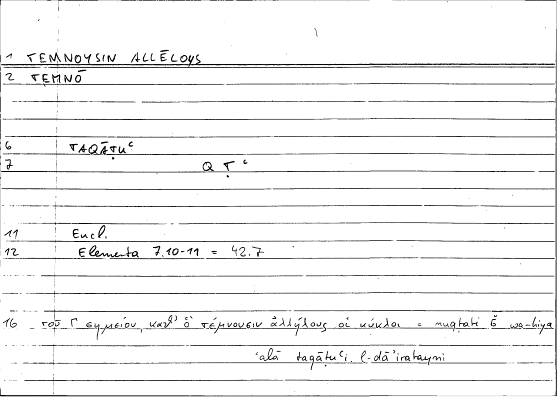 1 TEMNOYSIN ALLĒLOYS
2 TEMNŌ
6 TAQĀṬUʿ
7 Q Ṭ ʿ
11 Eucl.
12 Elementa 7.10-11 = 42.7
16 τοῦ Γ σημείου, καθ' ὃ τέμνουσιν ἀλλήλους οἱ κύκλοι = nuqṭati ǧ wa-hiya
ʿalā taqāṭuʿi l-dāʾiratayni